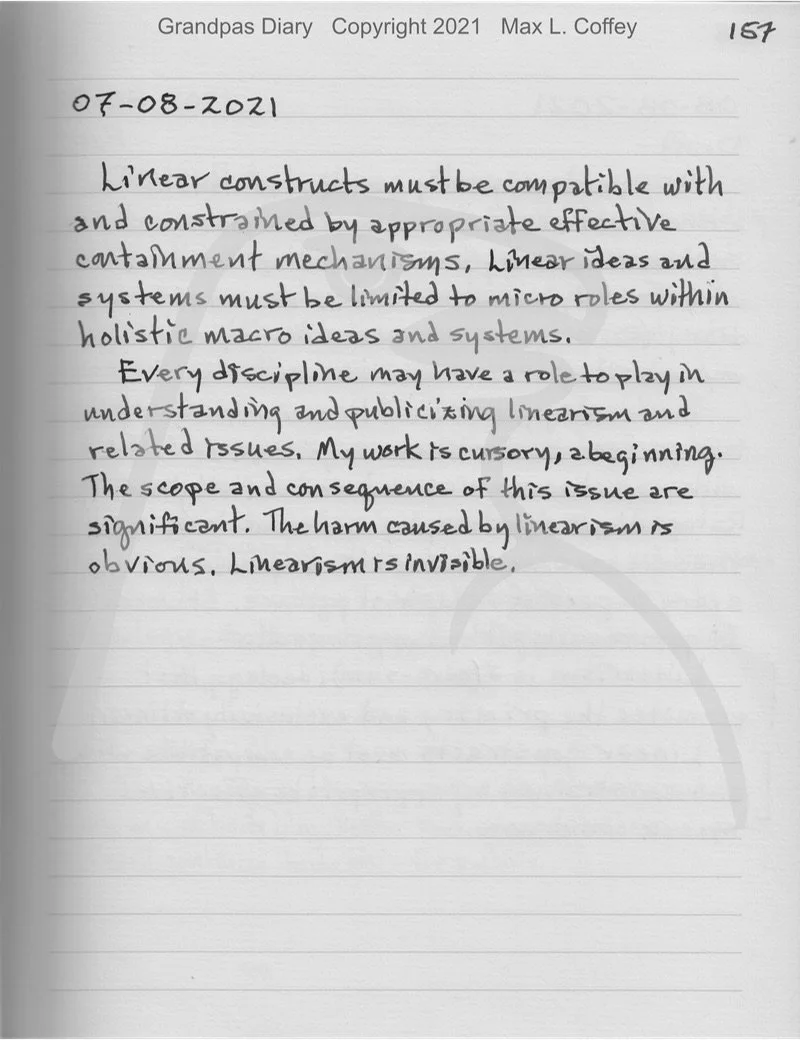 Grandpas Diary Copyright 2021 Max L. Coffey 157
07-08-2021
Linear constructs must be compatible with
and constrained by appropriate effective
containment mechanisms. Linear ideas and
systems must be limited to micro roles within
holistic macro ideas and systems.
Every discipline may have a role to play in
understanding and publicizing linearism and
related issues. My work is cursory, a beginning.
The scope and consequence of this issue are
significant. The harm caused by linearism is
obvious. Linearism is invisible.